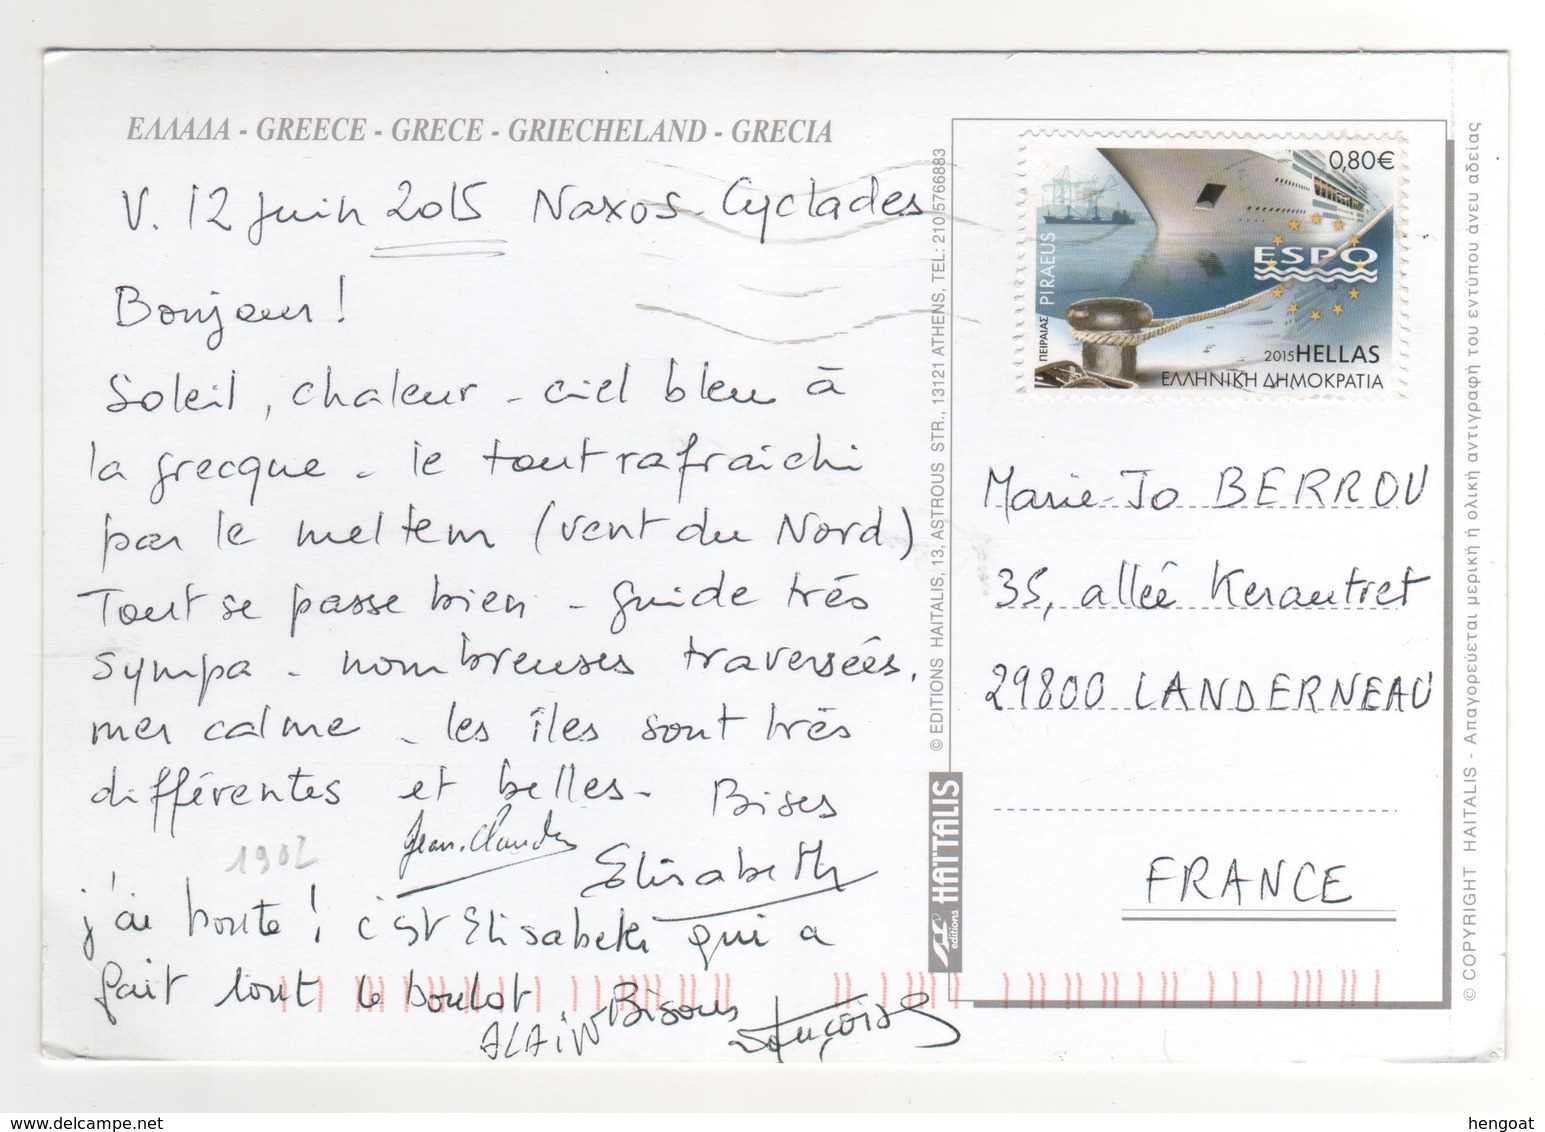 ΕΛΛΑΔΑ - GREECE - GRECE - GRIECHELAND - GRECIA
V. 12 juin 2015 Naxos - Cyclades
Bonjour !
Soleil, chaleur - ciel bleu à
la grecque - le tout rafraichi
par le meltem (vent du Nord)
Tout se passe bien - guide très
sympa - nombreuses traversées,
mer calme - les îles sont très
différentes et belles - Bises
Jean-Claude
Elisabeth
1902
j'ai honte ! c'est Elisabeth qui a
fait tout le boulot Bisous
ALAIN
Françoise
© EDITIONS HAITALIS, 13, ASTROUS STR., 13121 ATHENS, TEL: 210 5766883
HAÏTALIS
editions
0,80€
ESPO
ΠΕΙΡΑΙΑΣ PIRAEUS
2015 HELLAS
ΕΛΛΗΝΙΚΗ ΔΗΜΟΚΡΑΤΙΑ
Marie-Jo BERROU
35, allée Kerautret
29800 LANDERNEAU
FRANCE
© COPYRIGHT HAITALIS - Απαγορεύεται μερική ή ολική αντιγραφή του εντύπου άνευ αδείας
hengoat